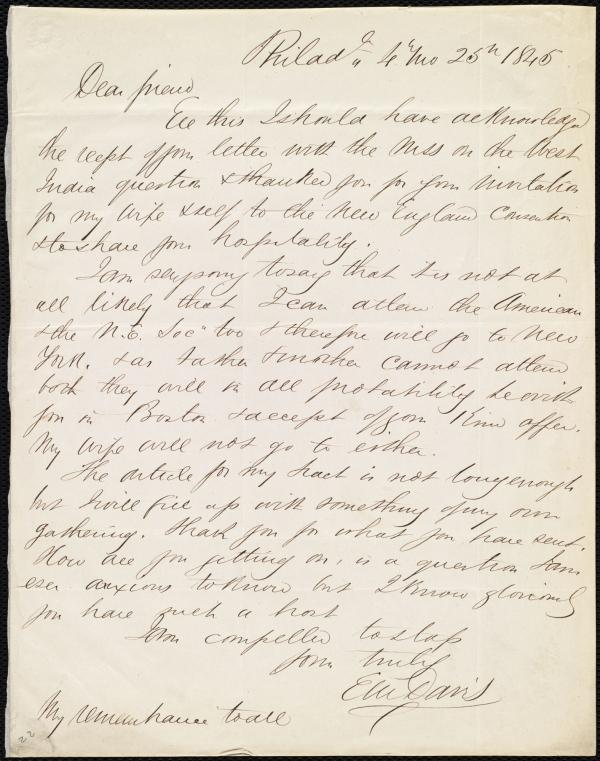 Philada 4th mo 25th 1845
Dear friend
Ere this I should have acknowledged
the recept of your letter with the Mss on the West
India question & thanked you for your invitation
for my Wife & self to the New England Convention
& to share your hospitality.
I am very sorry to say that it is not at
all likely that I can attend the American
& the N.E. Soc" too & therefore will go to New
York. & as Father & mother cannot attend
both they will in all probability be with
you in Boston & accept of your Kind offer.
My Wife will not go to either.
The article for my tract is not long enough
but I will fill up with something of my own
gathering. Thank you for what you have sent.
How are you getting on, is a question I am
ever anxious to Know but I Know gloriously
you have such a host
I am compelled to stop
Yours truly
E M Davis
My remembrance to all
22